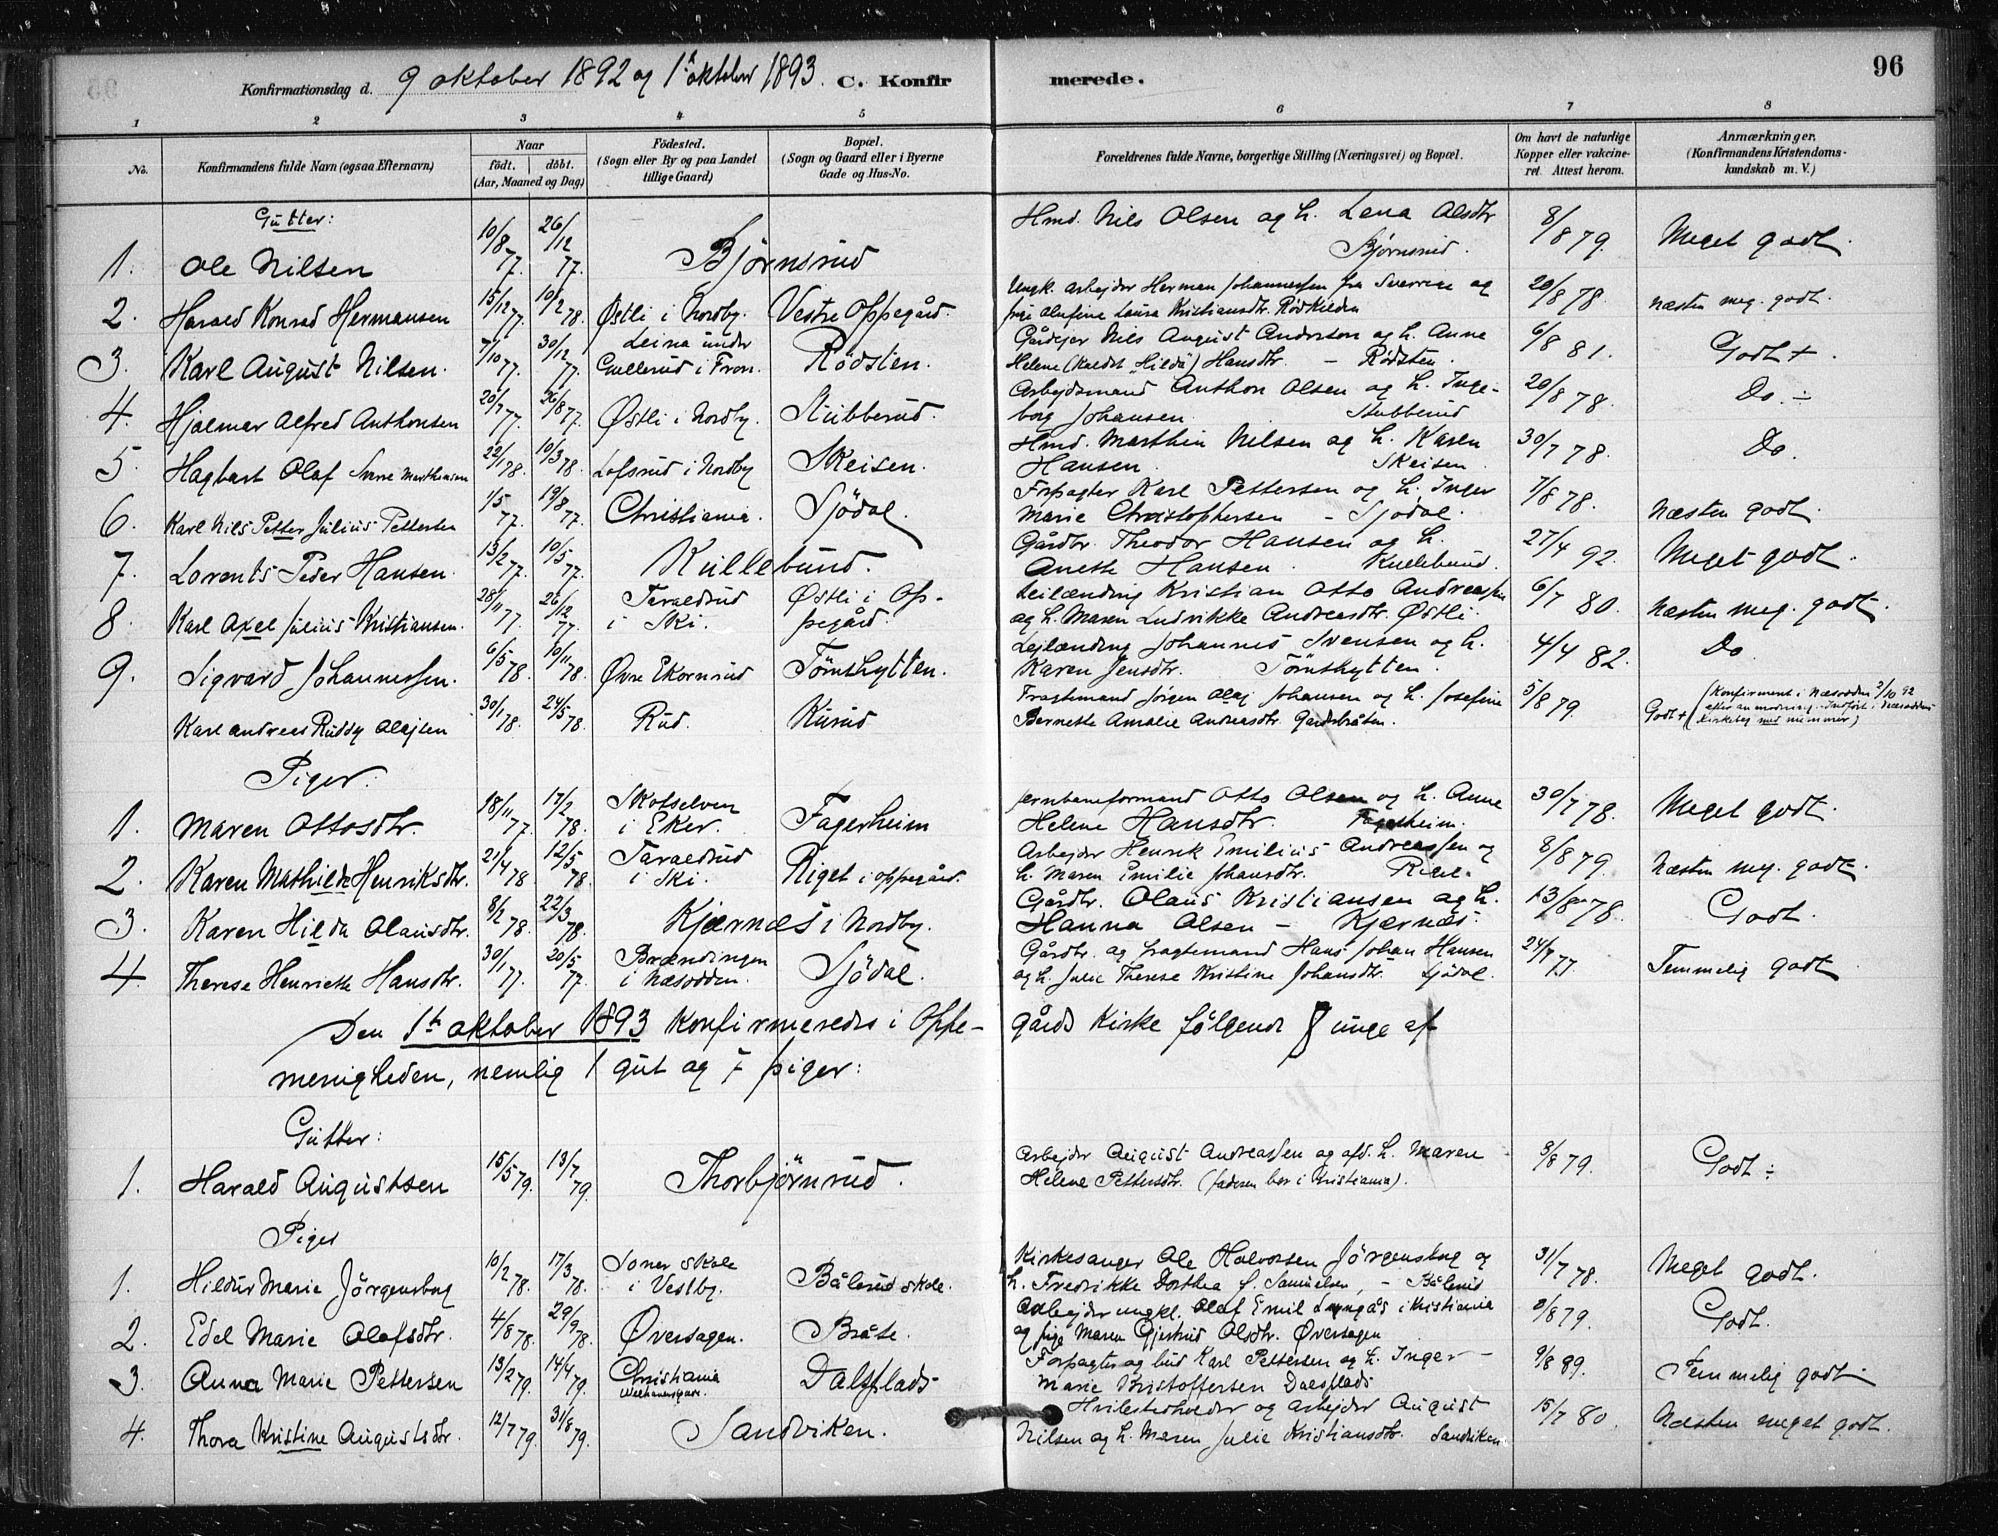 Konfirmationsdag d. 9 oktober 1892 og 1ste oktober 1893. C. Konfirmerede. 96
1 2 3 4 5 6 7 8
No. Konfirmandens fulde Navn (ogsaa Efternavn) Naar født. døbt. (Aar, Maaned og Dag) Fødested. (Sogn eller By og paa Landet tillige Gaard) Bopæl. (Sogn og Gaard eller i Byerne Gade og Hus-No. Forældrenes fulde Navne, borgerlige Stilling (Næringsvei) og Bopæl. Om havt de naturlige Kopper eller vakcineret. Attest herom. Anmærkninger. (Konfirmandens Kristendomskundskab m. V.)
Gutter:
1. Ole Nilsen 10/8 77. 26/12 77. Bjørnsrud Hmd. Nils Olsen og h. Lena Olsdtr Bjørnsrud. 8/8 79. Meget godt.
2. Harald Konrad Hermansen 15/12 77. 10/2 78. Østli i Nordby. Vestre Oppegård. Ungk. arbejder Herman Johannessen fra Sverrige og pige Olufine Laura Kristiansdtr. Rødkilden 20/8 78. Næsten meg. godt.
3. Karl August Nilsen. 7/10 77. 30/12 77. Leira under Gullerud i Fron. Rödsten. Gårdejer Nils August Anderson og h. Anne Helene (kaldet "Hilda") Hansdtr. – Rødsten. 6/8 81. Godt +.
4. Hjalmar Alfred Anthonsen 20/7 77. 26/8 77. Østli i Nordby. Stubberud. Arbejdsmand Anthon Olsen og h. Ingeborg Johansen. Stubberud 20/8 78. Do. ÷
5. Hagbart Olaf Sverre Marthinsen 22/1 78. 10/3 78. Lofsrud i Nordby Skeisen. Hmd. Marthin Nilsen og h. Karen Hansen. Skeisen. 30/7 78. Do.
6. Karl Nils Petter Julius Pettersen 1/5 77. 19/8 77. Christiania. Sjödal. Forpagter Karl Pettersen og h. Inger Marie Christophersen – Sjödal. 7/8 78. Næsten godt.
7. Lorents Peder Hansen. 13/2 77. 10/5 77. Kullebund. Gårdbr. Theodor Hansen og h. Anette Hansen. Kullebund. 27/4 92. Meget godt.
8. Karl Axel Julius Kristiansen. 28/11 77. 26/12 77. Taraldrud i Ski. Østli i Oppegård. Leilænding Kristian Otto Andreassen og h. Maren Ludvikke Andreasdtr. Østli 6/7 80. Næsten meg. godt.
9. Sigvard Johannessen. 6/5 78. 10/11 78. Øvre Ekornrud Tömthytten. Lejlænding Johannes Svensen og h. Karen Jensdtr. Tömthytten. 4/4 82. Do
Karl Andreas Ruddy Olafsen 30/1 78. 24/5 78. Rud. Kurud Fragtemand Jørgen Olaf Johansen og h. Josefine Bernette Amalie Andreasdtr. Gardebråten. 5/8 79. Godt + (Konfirment i Næsodden 2/10 92 efter anmodning. Indført i Næsoddens Kirkebog med nummer)
Piger:
1. Maren Ottosdtr. 18/11 77. 17/2 78. Skotselven i Eker. Fagerheim Jernbaneformand Otto Olsen og h. Anne Helene Hansdtr. Fagerheim. 30/7 78. Meget godt.
2. Karen Mathilde Henriksdtr. 21/4 78. 12/5 78. Taraldrud i Ski. Riget i Oppegård. Arbejder Henrik Emilius Andreassen og h. Maren Emilie Johansdtr. Riget. 8/8 79. Næsten meg. godt.
3. Karen Hilda Olausdtr. 8/2 78. 22/3 78. Kjærnæs i Nordby. Gårdbr. Olaus Kristiansen og h. Hanna Olsen – Kjærnæs. 13/8 78. Godt.
4. Therese Henriette Hansdtr. 30/1 77. 20/5 77. Brændingen i Næsodden. Sjödal. Gårdbr. og fragtemand Hans Johan Hansen og h. Julie Therese Kristine Johansdtr. Sjödal. 24/7 77 Temmelig godt
Den 1ste oktober 1893 konfirmeredes i Oppegårds Kirke følgende 8 unge af
menigheden, nemlig 1 gut og 7 piger:
Gutter:
1. Harald Augustsen 15/5 79. 13/7 79. Thorbjörnrud. Arbejder August Andreassen og afd. h. Maren Helene Pettersdtr. (faderen bor i Kristiania). 8/8 79. Godt ÷
Piger
1. Hildur Marie Jörgensbog 10/2 78. 17/3 78. Soner Skole i Vestby. Bålerud skole. Kirkesanger Ole Halvorsen Jörgensbog og h. Fredrikke Dorthea f. Samuelsen, – Bålerud 31/7 78. Meget godt.
2. Edel Marie Olafsdtr. 4/8 78. 29/9 78. Øversagen. Bråte. Arbejder ungkl. Olaf Emil Lyngås i Kristiania og pige Maren Gjertrud Olsdtr. Øversagen 8/8 79. Godt.
3. Anna Marie Pettersen 13/2 79. 14/4 79. Christiania Welhavensgade. Dalsplads Forpagter og bud Karl Pettersen og h. Inger Marie Kristoffersen Dalsplads 9/8 89. Temmelig godt
4. Thora Kristine Augustsdtr. 12/7 79. 31/8 79. Sandviken. Hvilestedholder og arbejder August Nilsen og h. Maren Julie Kristiansdtr. Sandviken 15/7 80. Næsten meget godt.